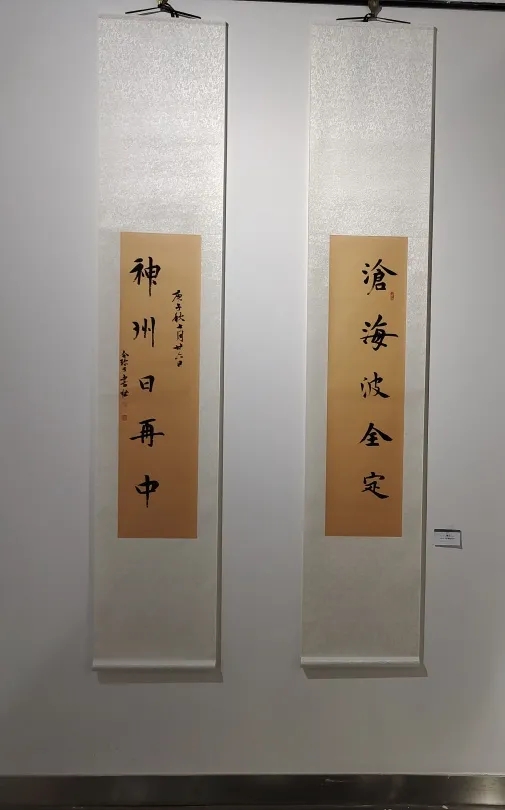 滄海波全定
神州日再中
庚午秋七月廿六日